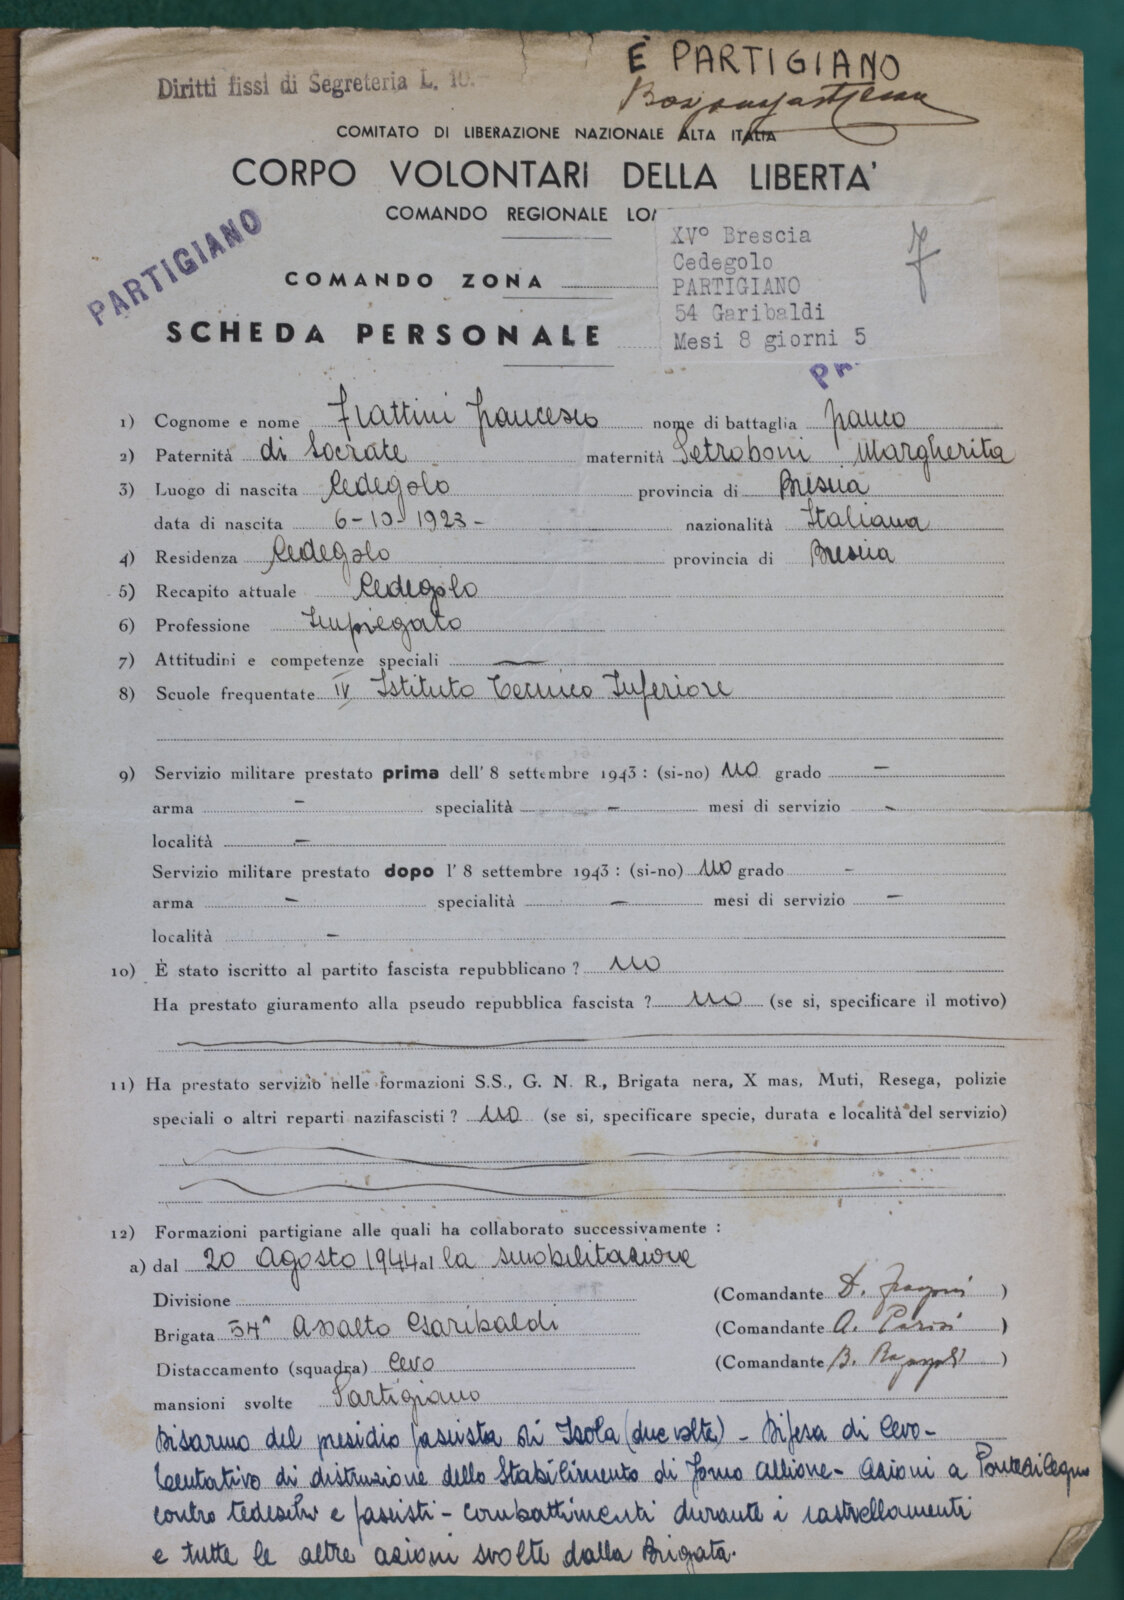 Diritti fissi di Segreteria L. 10.-
È PARTIGIANO
COMITATO DI LIBERAZIONE NAZIONALE ALTA ITALIA
CORPO VOLONTARI DELLA LIBERTA'
COMANDO REGIONALE LO
PARTIGIANO
XV° Brescia
Cedegolo
PARTIGIANO
54 Garibaldi
Mesi 8 giorni 5
7
COMANDO ZONA
SCHEDA PERSONALE
PA
1) Cognome e nome Frattini Francesco nome di battaglia Franco
2) Paternità di Socrate maternità Petroboni Margherita
3) Luogo di nascita Cedegolo provincia di Brescia
data di nascita 6-10-1923- nazionalità Italiana
4) Residenza Cedegolo provincia di Brescia
5) Recapito attuale Cedegolo
6) Professione Impiegato
7) Attitudini e competenze speciali —
8) Scuole frequentate IV Istituto Tecnico Inferiore
9) Servizio militare prestato prima dell' 8 settembre 1943 : (si-no) no grado —
arma — specialità — mesi di servizio -
località —
Servizio militare prestato dopo l' 8 settembre 1943 : (si-no) no grado -
arma — specialità — mesi di servizio —
località —
10) È stato iscritto al partito fascista repubblicano ? no
Ha prestato giuramento alla pseudo repubblica fascista ? no (se si, specificare il motivo)
11) Ha prestato servizio nelle formazioni S.S., G. N. R., Brigata nera, X mas, Muti, Resega, polizie
speciali o altri reparti nazifascisti ? no (se si, specificare specie, durata e località del servizio)
12) Formazioni partigiane alle quali ha collaborato successivamente :
a) dal 20 Agosto 1944 al la smobilitazione
Divisione (Comandante D. )
Brigata 54ª Assalto Garibaldi (Comandante A. Parisi )
Distaccamento (squadra) Cevo (Comandante B. )
mansioni svolte Partigiano
Disarmo del presidio fascista di Isola (due volte) - Difesa di Cevo -
Tentativo di distruzione dello Stabilimento di Forno Allione - Azioni a Ponte di Legno
contro tedeschi e fascisti - Combattimenti durante i rastrellamenti
e tutte le altre azioni svolte dalla Brigata.